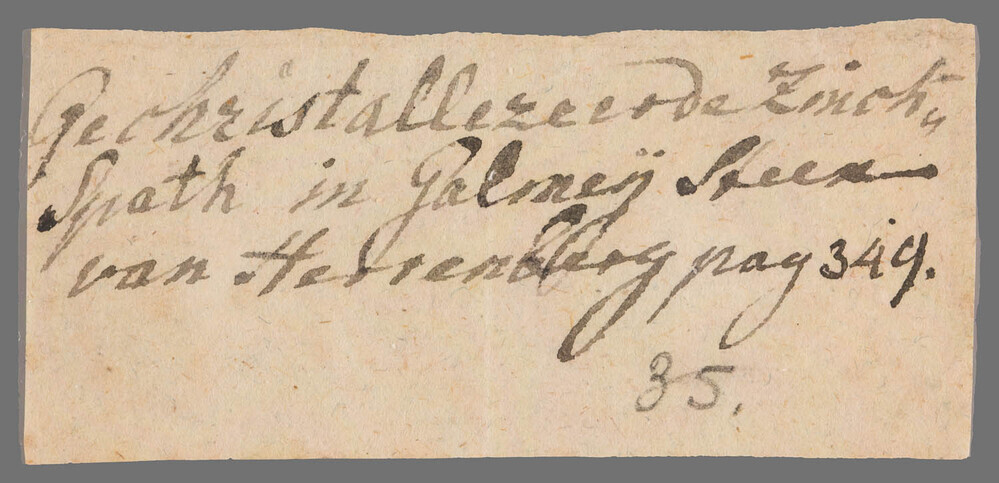 Gechristallezeerde Zinck„
Spath in Galmeÿ Steen
van Herrenberg pag 349.
35.